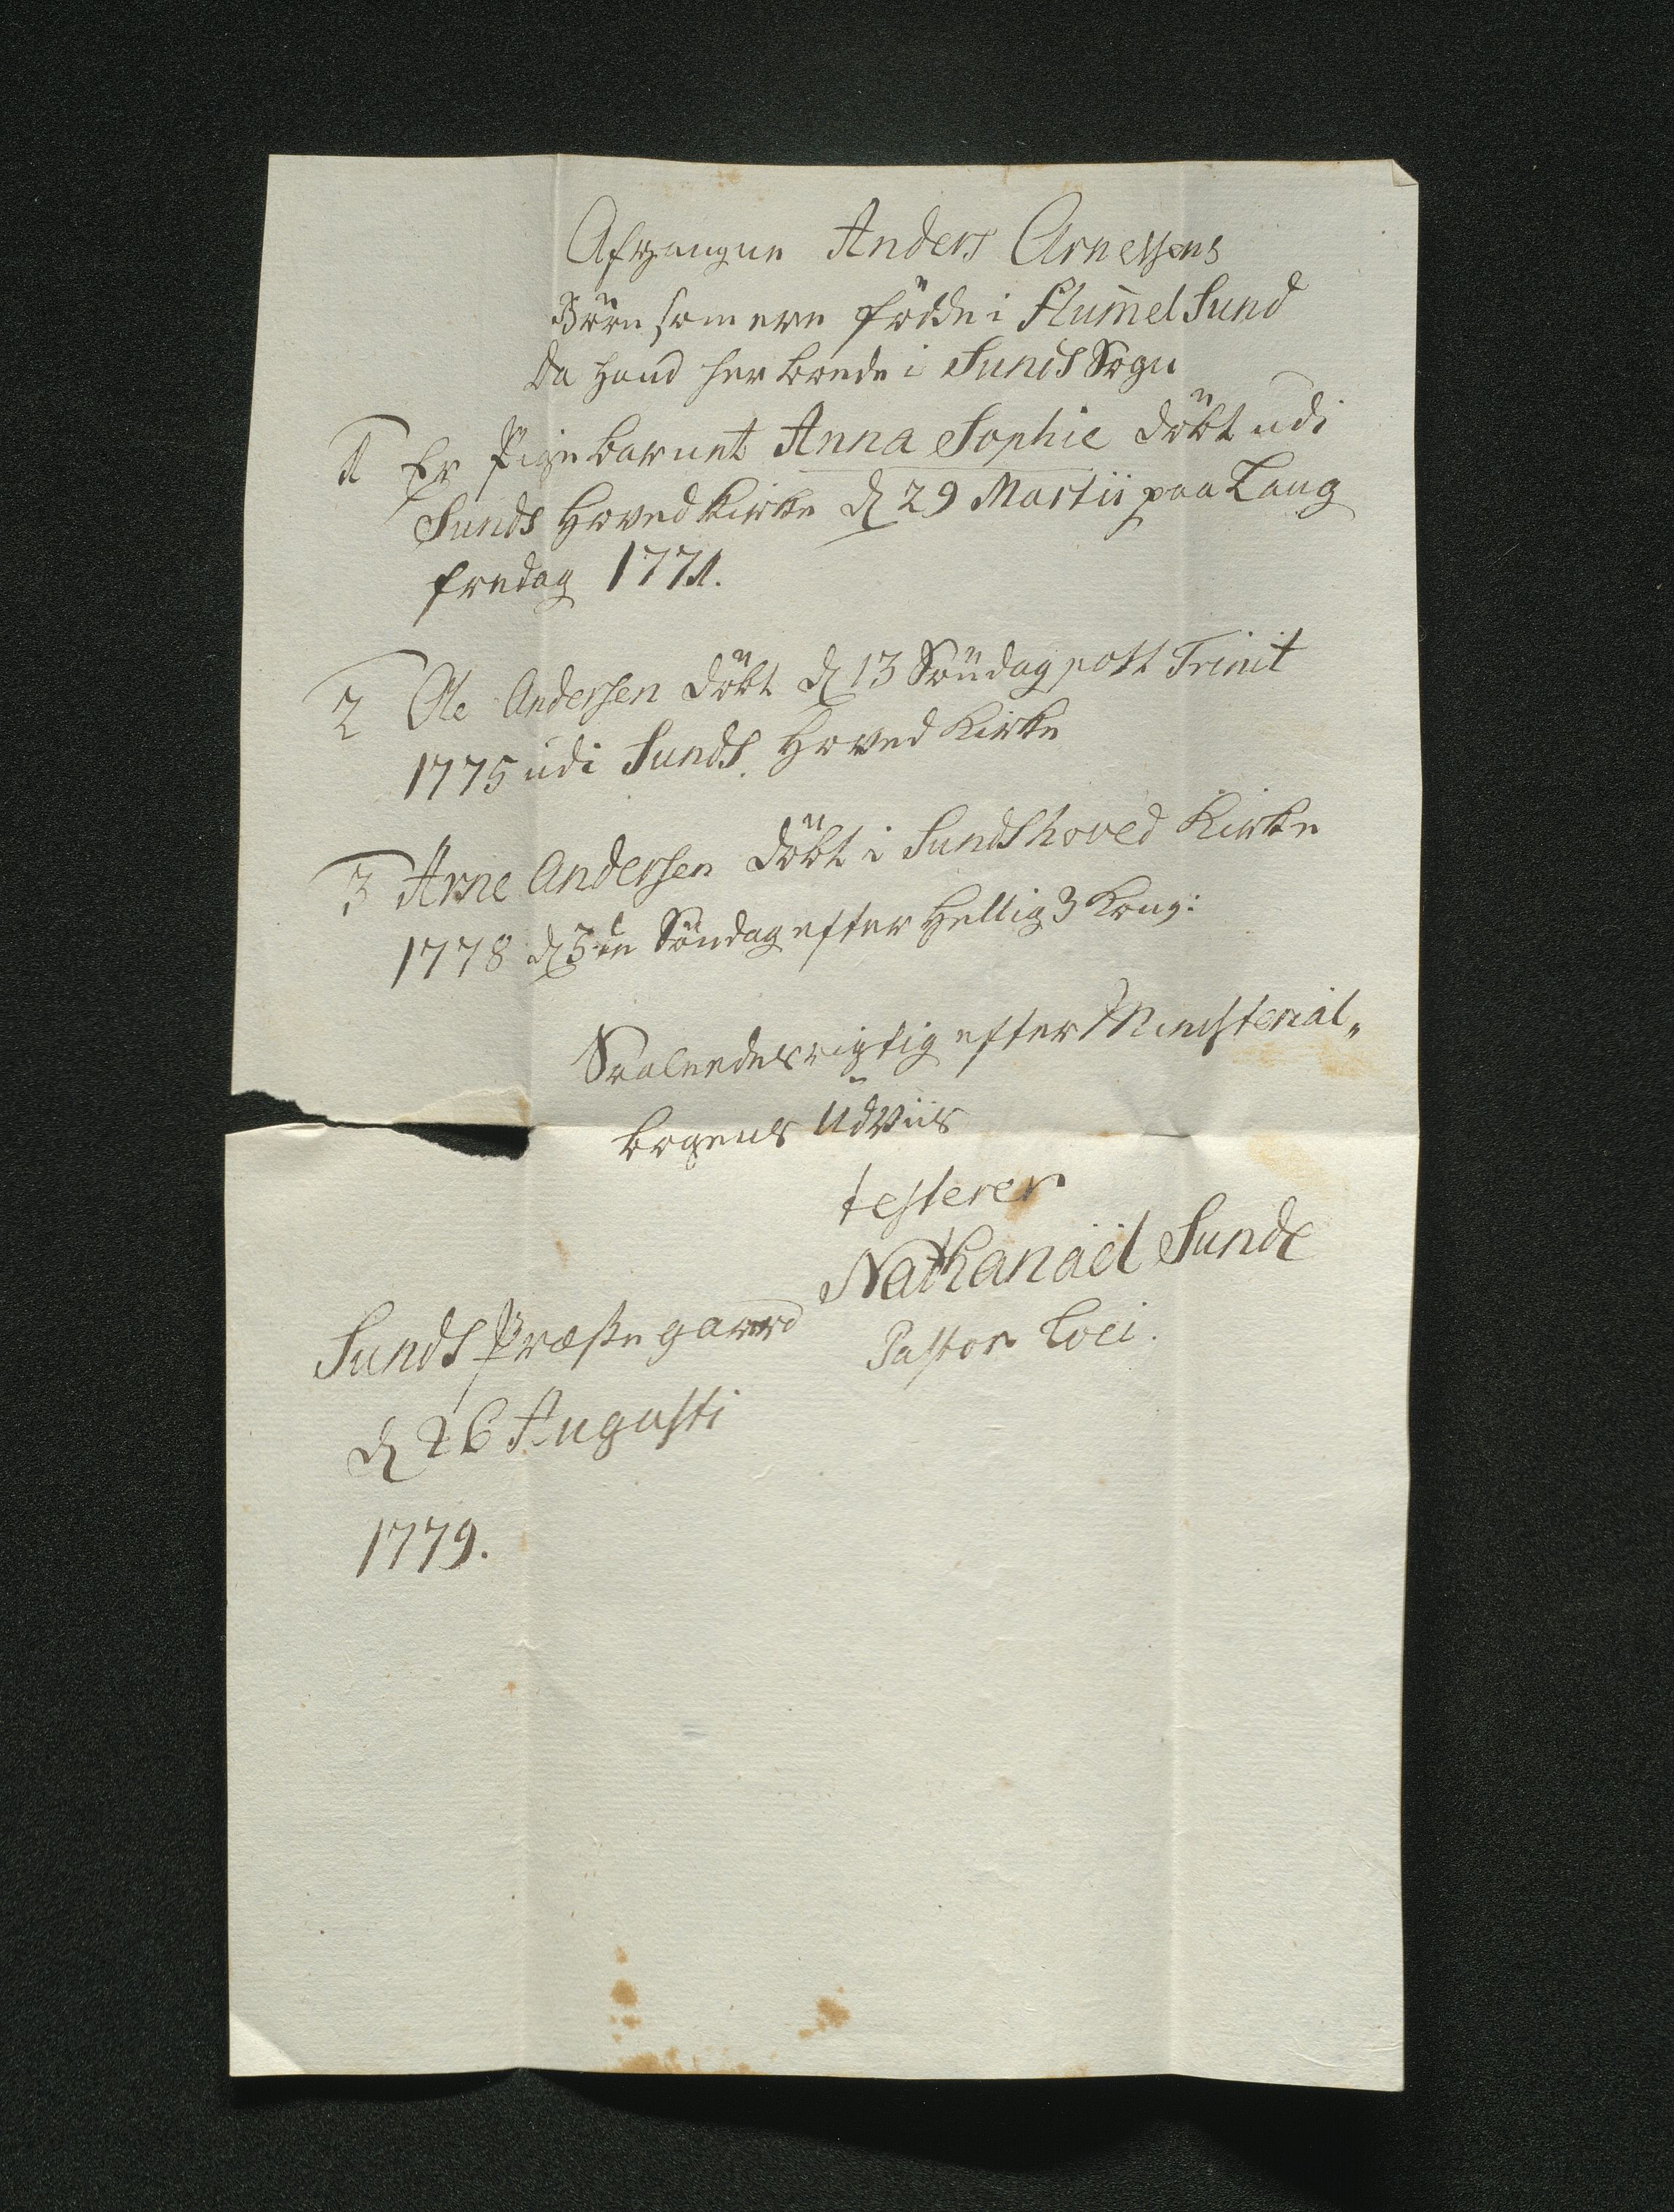 Afgangne Anders Arnessens
Börn som ere födde i Hum̄elSund
da hand her boede i Sunds Sogn
1 Er Pigebarnet Anna Sophie döbt udi
Sunds Hoved Kirke d 29 Martii paa Lang
fredag 1771.
2 Ole Andersen döbt d 13 Söndag post Trinit
1775 udi Sunds Hoved Kirke
3 Arne Andersen döbt i Sunds hoved Kirke
1778 d 3de Söndag efter Hellig 3 Kong:
Saaleedes rigtig efter Ministerial„
bogens Udviis
testerer
Nathanaël Sunde
Pastor Loci.
Sunds Præstegaard
d 26 Augusti
1779.